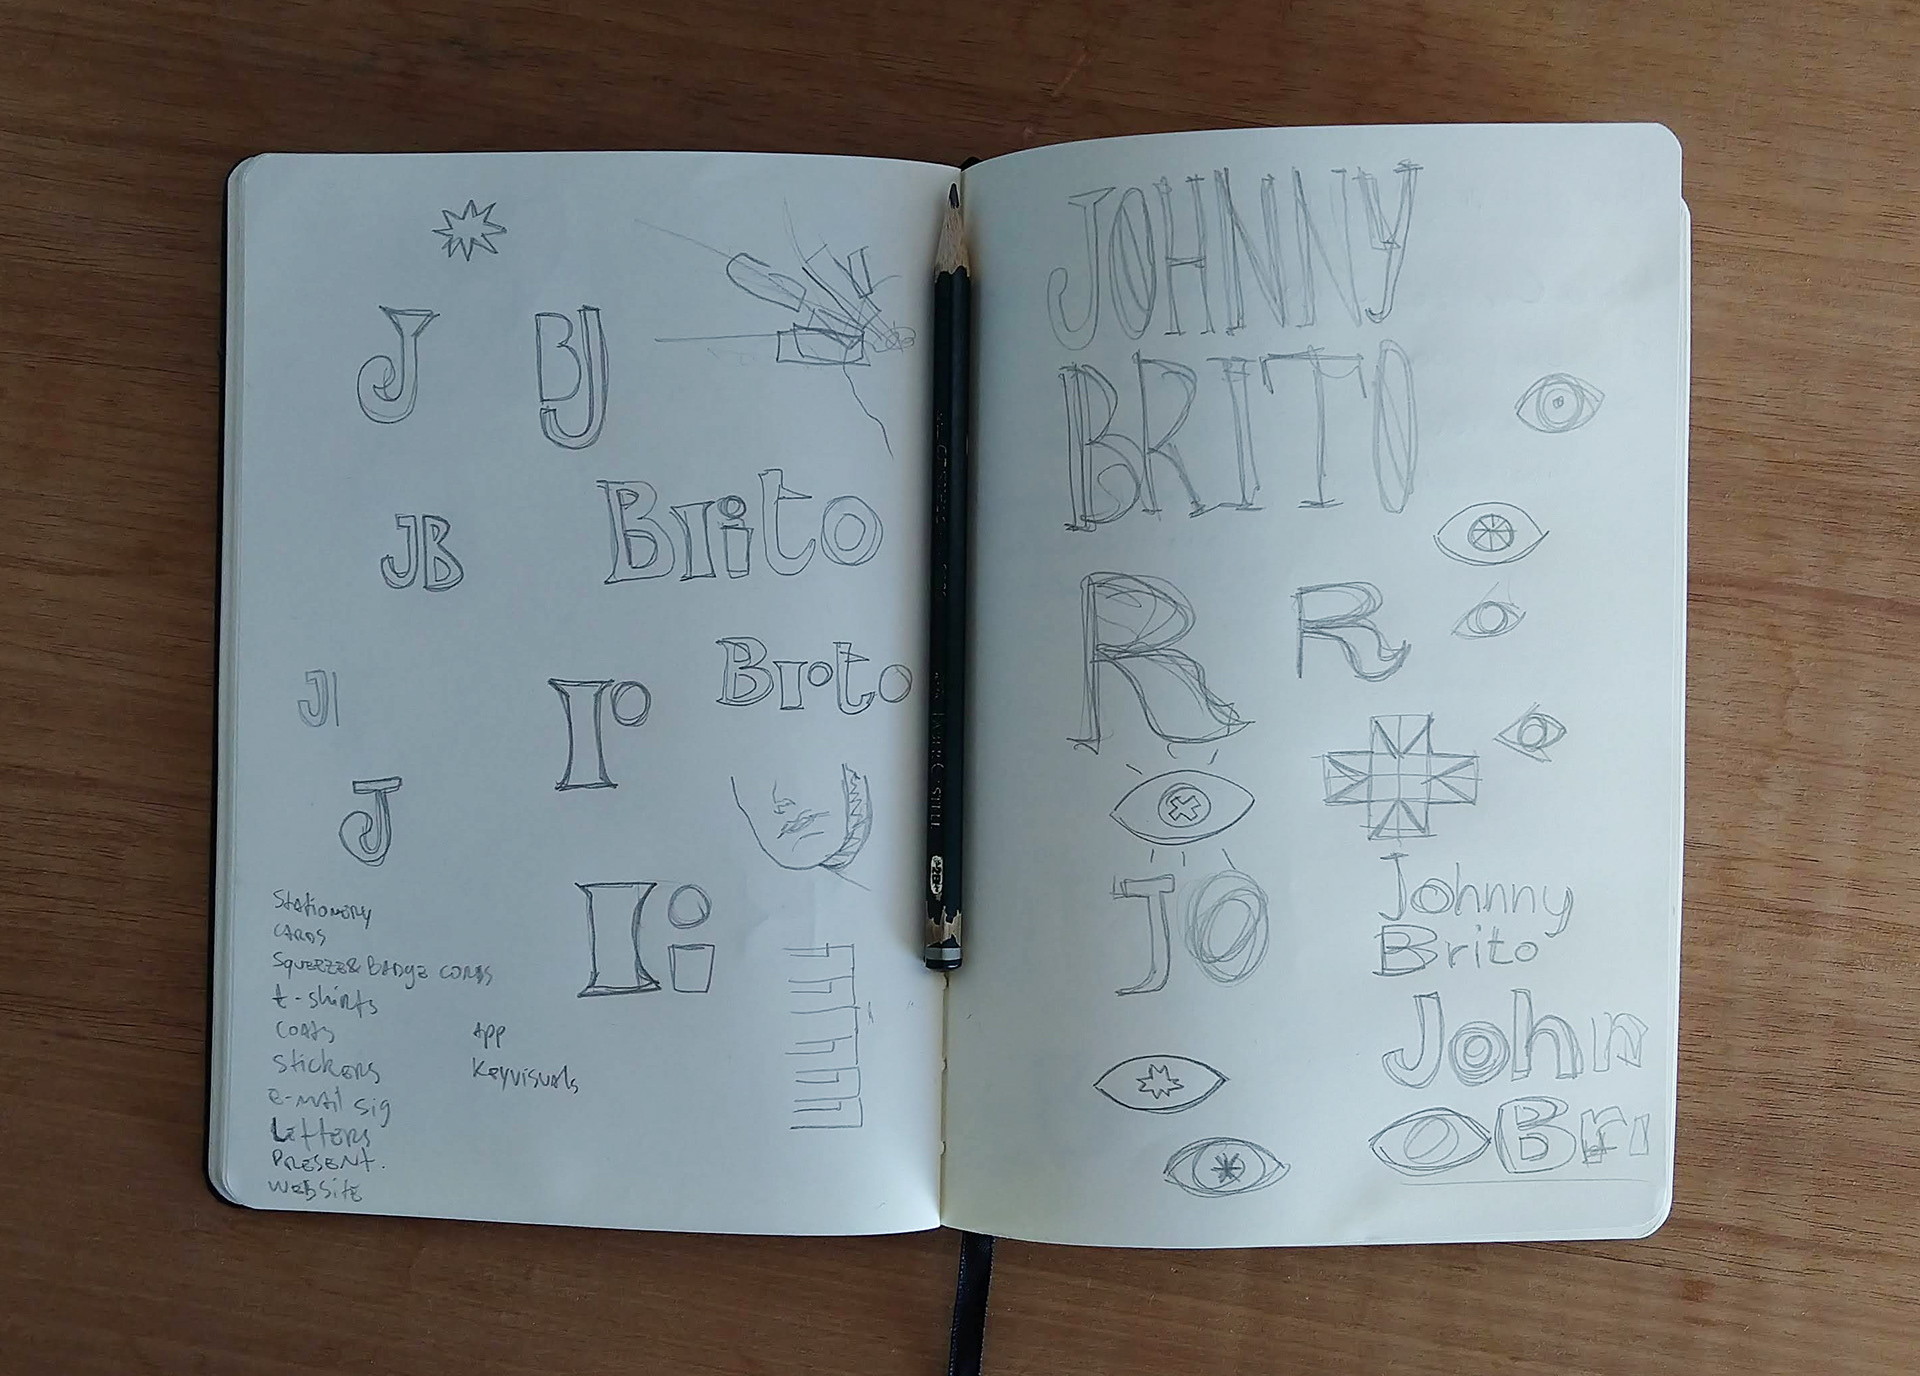 J BJ
JB
Brito
JI
Brto
J
Stationery
CARDS
Squeeze & Badge cords
t-shirts
coats
stickers
e-mail sig
Letters
PRESENT.
website
App
Keyvisuals
JOHNNY
BRITO
R R
JO
Johnny
Brito
John
Bri